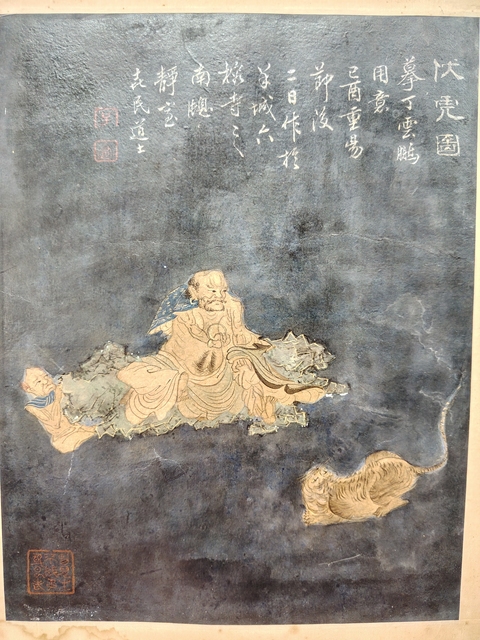 伏虎圖
摹丁雲鵬
用意
己酉重陽
節後
二日作於
羊城六
榕寺之
南牕
靜室
民道士